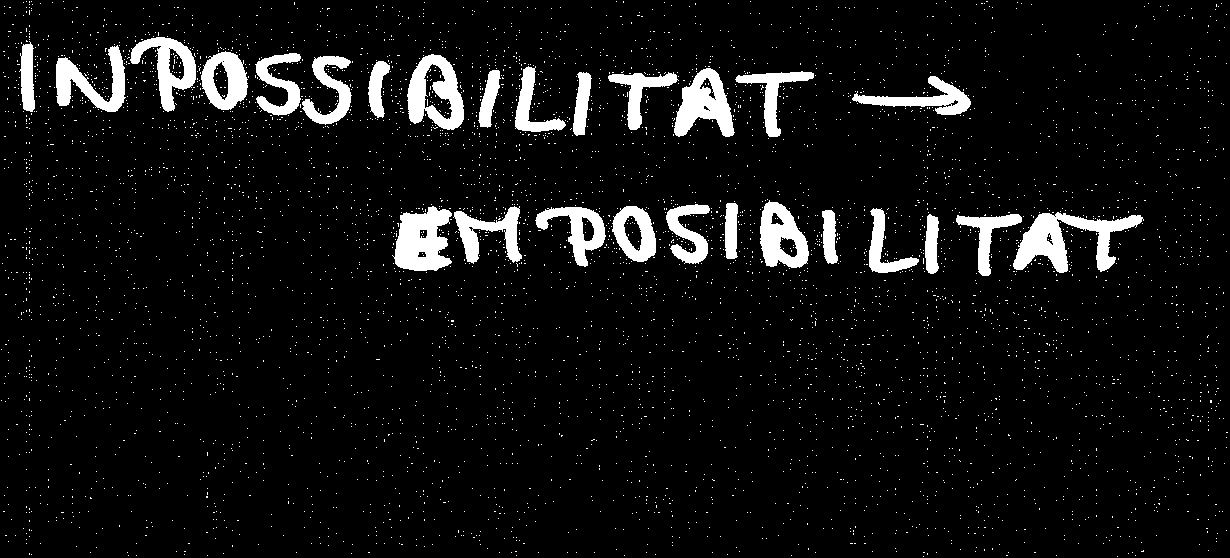 INPOSSIBILITAT →
EMPOSIBILITAT